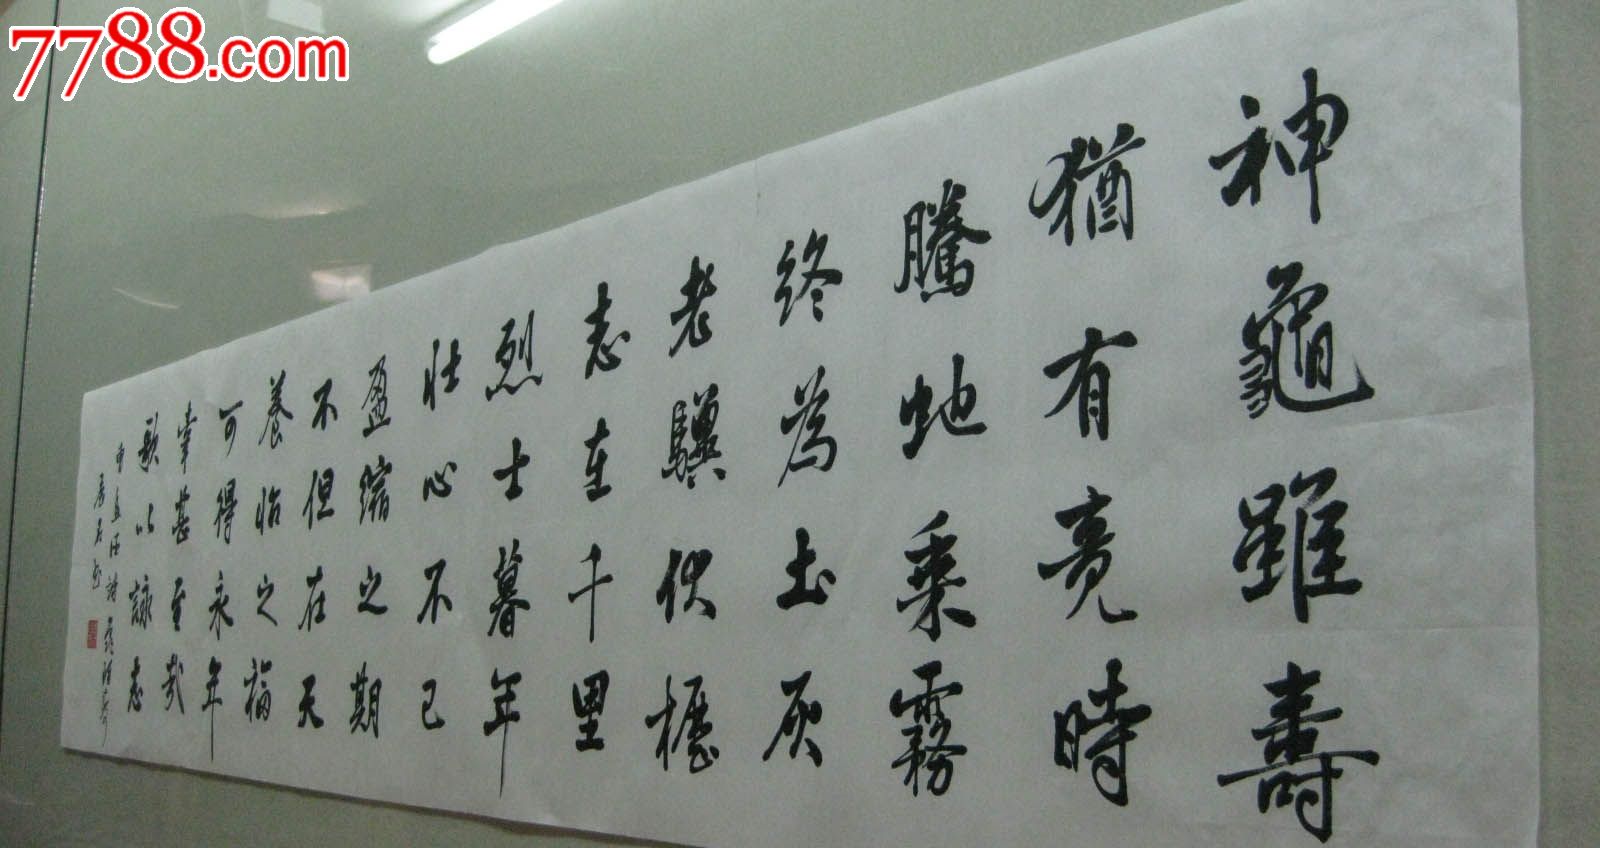 7788.com
神龜雖壽
猶有竟時
騰虵乘霧
終為土灰
老驥伏櫪
志在千里
烈士暮年
壯心不已
盈縮之期
不但在天
養怡之福
可得永年
幸甚至哉
歌以詠志